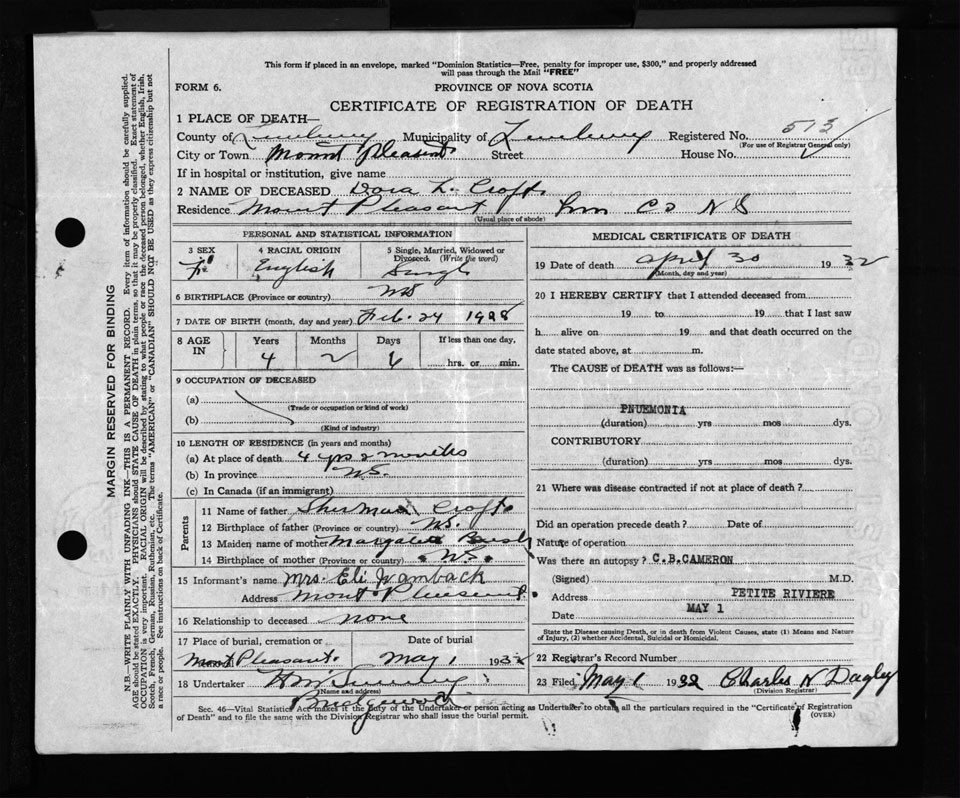 This form if placed in an envelope, marked "Dominion Statistics—Free, penalty for improper use, $300," and properly addressed
will pass through the Mail "FREE"
FORM 6.
PROVINCE OF NOVA SCOTIA
CERTIFICATE OF REGISTRATION OF DEATH
1 PLACE OF DEATH—
County of Lunenburg Municipality of Lunenburg Registered No. 513
(For use of Registrar General only)
City or Town Mount Pleasant Street House No.
If in hospital or institution, give name
2 NAME OF DECEASED Dora L. Croft
Residence Mount Pleasant Lun Co N S
(Usual place of abode)
PERSONAL AND STATISTICAL INFORMATION
3 SEX 4 RACIAL ORIGIN 5 Single, Married, Widowed or
Divorced. (Write the word)
F English Single
6 BIRTHPLACE (Province or country) NS
7 DATE OF BIRTH (month, day and year) Feb. 24 1928
8 AGE IN Years Months Days If less than one day,
4 2 6 hrs. or min.
9 OCCUPATION OF DECEASED
(a)
(Trade or occupation or kind of work)
(b)
(Kind of industry)
10 LENGTH OF RESIDENCE (in years and months)
(a) At place of death 4 yrs 2 months
(b) In province N.S.
(c) In Canada (if an immigrant)
Parents
11 Name of father Sherman Croft
12 Birthplace of father (Province or country) N.S.
13 Maiden name of mother Margaret Bush
14 Birthplace of mother (Province or country) N.S.
15 Informant's name Mrs. Eli Wamback
Address Mont Pleasant.
16 Relationship to deceased none
17 Place of burial, cremation or Date of burial
Mont Pleasant. May 1 1932
18 Undertaker
(Name and address)
Bridgewater
MEDICAL CERTIFICATE OF DEATH
19 Date of death April 30 1932
(Month, day and year)
20 I HEREBY CERTIFY that I attended deceased from
19 to 19 that I last saw
h alive on 19 and that death occurred on the
date stated above, at m.
The CAUSE of DEATH was as follows:—
PNUEMONIA
(duration) yrs mos dys.
CONTRIBUTORY
(duration) yrs. mos. dys.
21 Where was disease contracted if not at place of death?
Did an operation precede death? Date of
Nature of operation
Was there an autopsy? C.B.CAMERON
(Signed) M.D.
Address PETITE RIVIERE
Date MAY 1
State the Disease causing Death, or in death from Violent Causes, state (1) Means and Nature
of Injury, (2) whether Accidental, Suicidal or Homicidal.
22 Registrar's Record Number
23 Filed May 1 1932 Charles N Dagley
(Division Registrar)
Sec. 46—Vital Statistics Act makes it the duty of the Undertaker or person acting as Undertaker to obtain all the particulars required in the "Certificate of Registration
of Death" and to file the same with the Division Registrar who shall issue the burial permit.
(OVER)
MARGIN RESERVED FOR BINDING
N.B.—WRITE PLAINLY WITH UNFADING INK—THIS IS A PERMANENT RECORD. Every item of information should be carefully supplied.
AGE should be stated EXACTLY. PHYSICIANS should STATE CAUSE OF DEATH in plain terms, so that it may be properly classified. Exact statement of
OCCUPATION is very important. RACIAL ORIGIN will be described by stating to what people or race the deceased person belonged, whether English, Irish,
Scotch, French, German, Russian, Ruthenian, etc. The terms "AMERICAN" or "CANADIAN" SHOULD NOT BE USED as they express citizenship but not
a race or people. See instructions on back of Certificate.